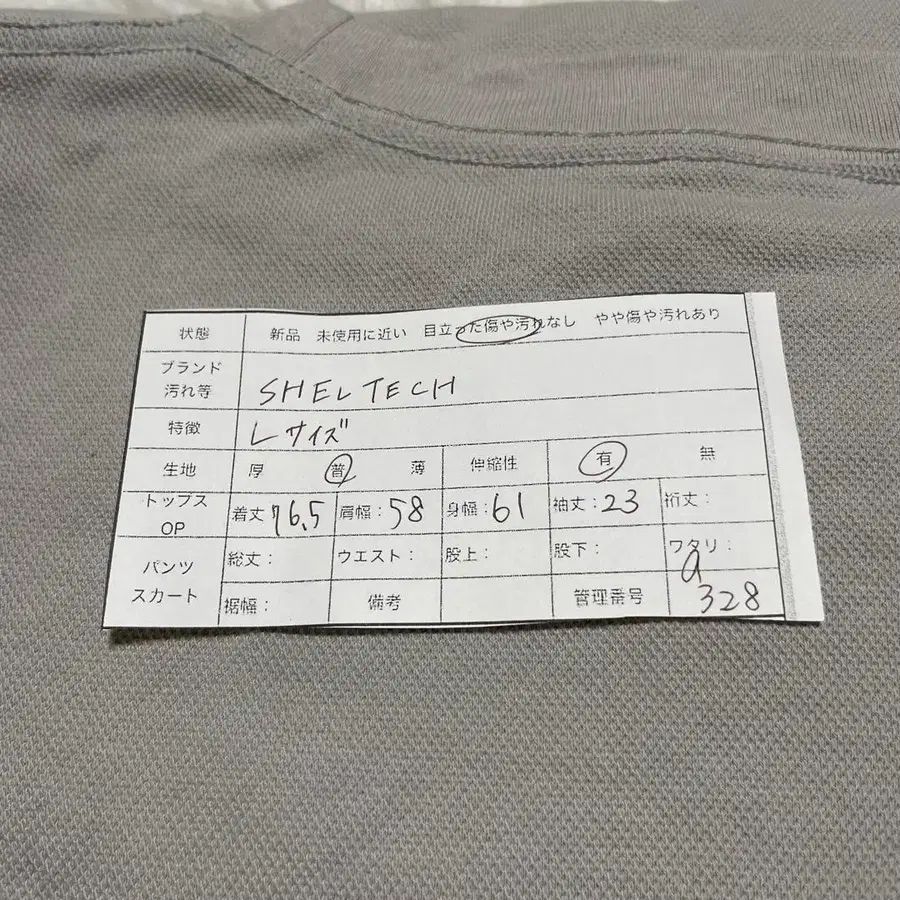 状態 新品 未使用に近い 目立った傷や汚れなし やや傷や汚れあり
ブランド
汚れ等 SHELTECH
特徴 Lサイズ
生地 厚 普 薄 伸縮性 有 無
トップス
OP 着丈76.5 肩幅:58 身幅:61 袖丈:23 裄丈:
パンツ
スカート 総丈: ウエスト: 股上: 股下: ワタリ:
裾幅: 備考 管理番号 a
328